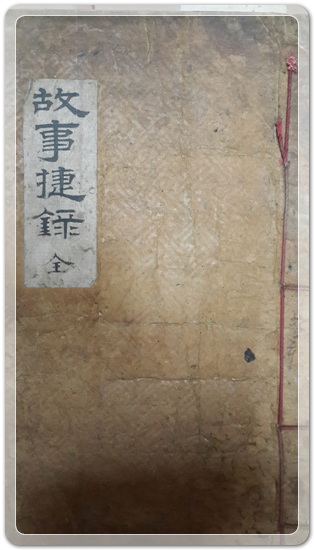 故事捷錄 全